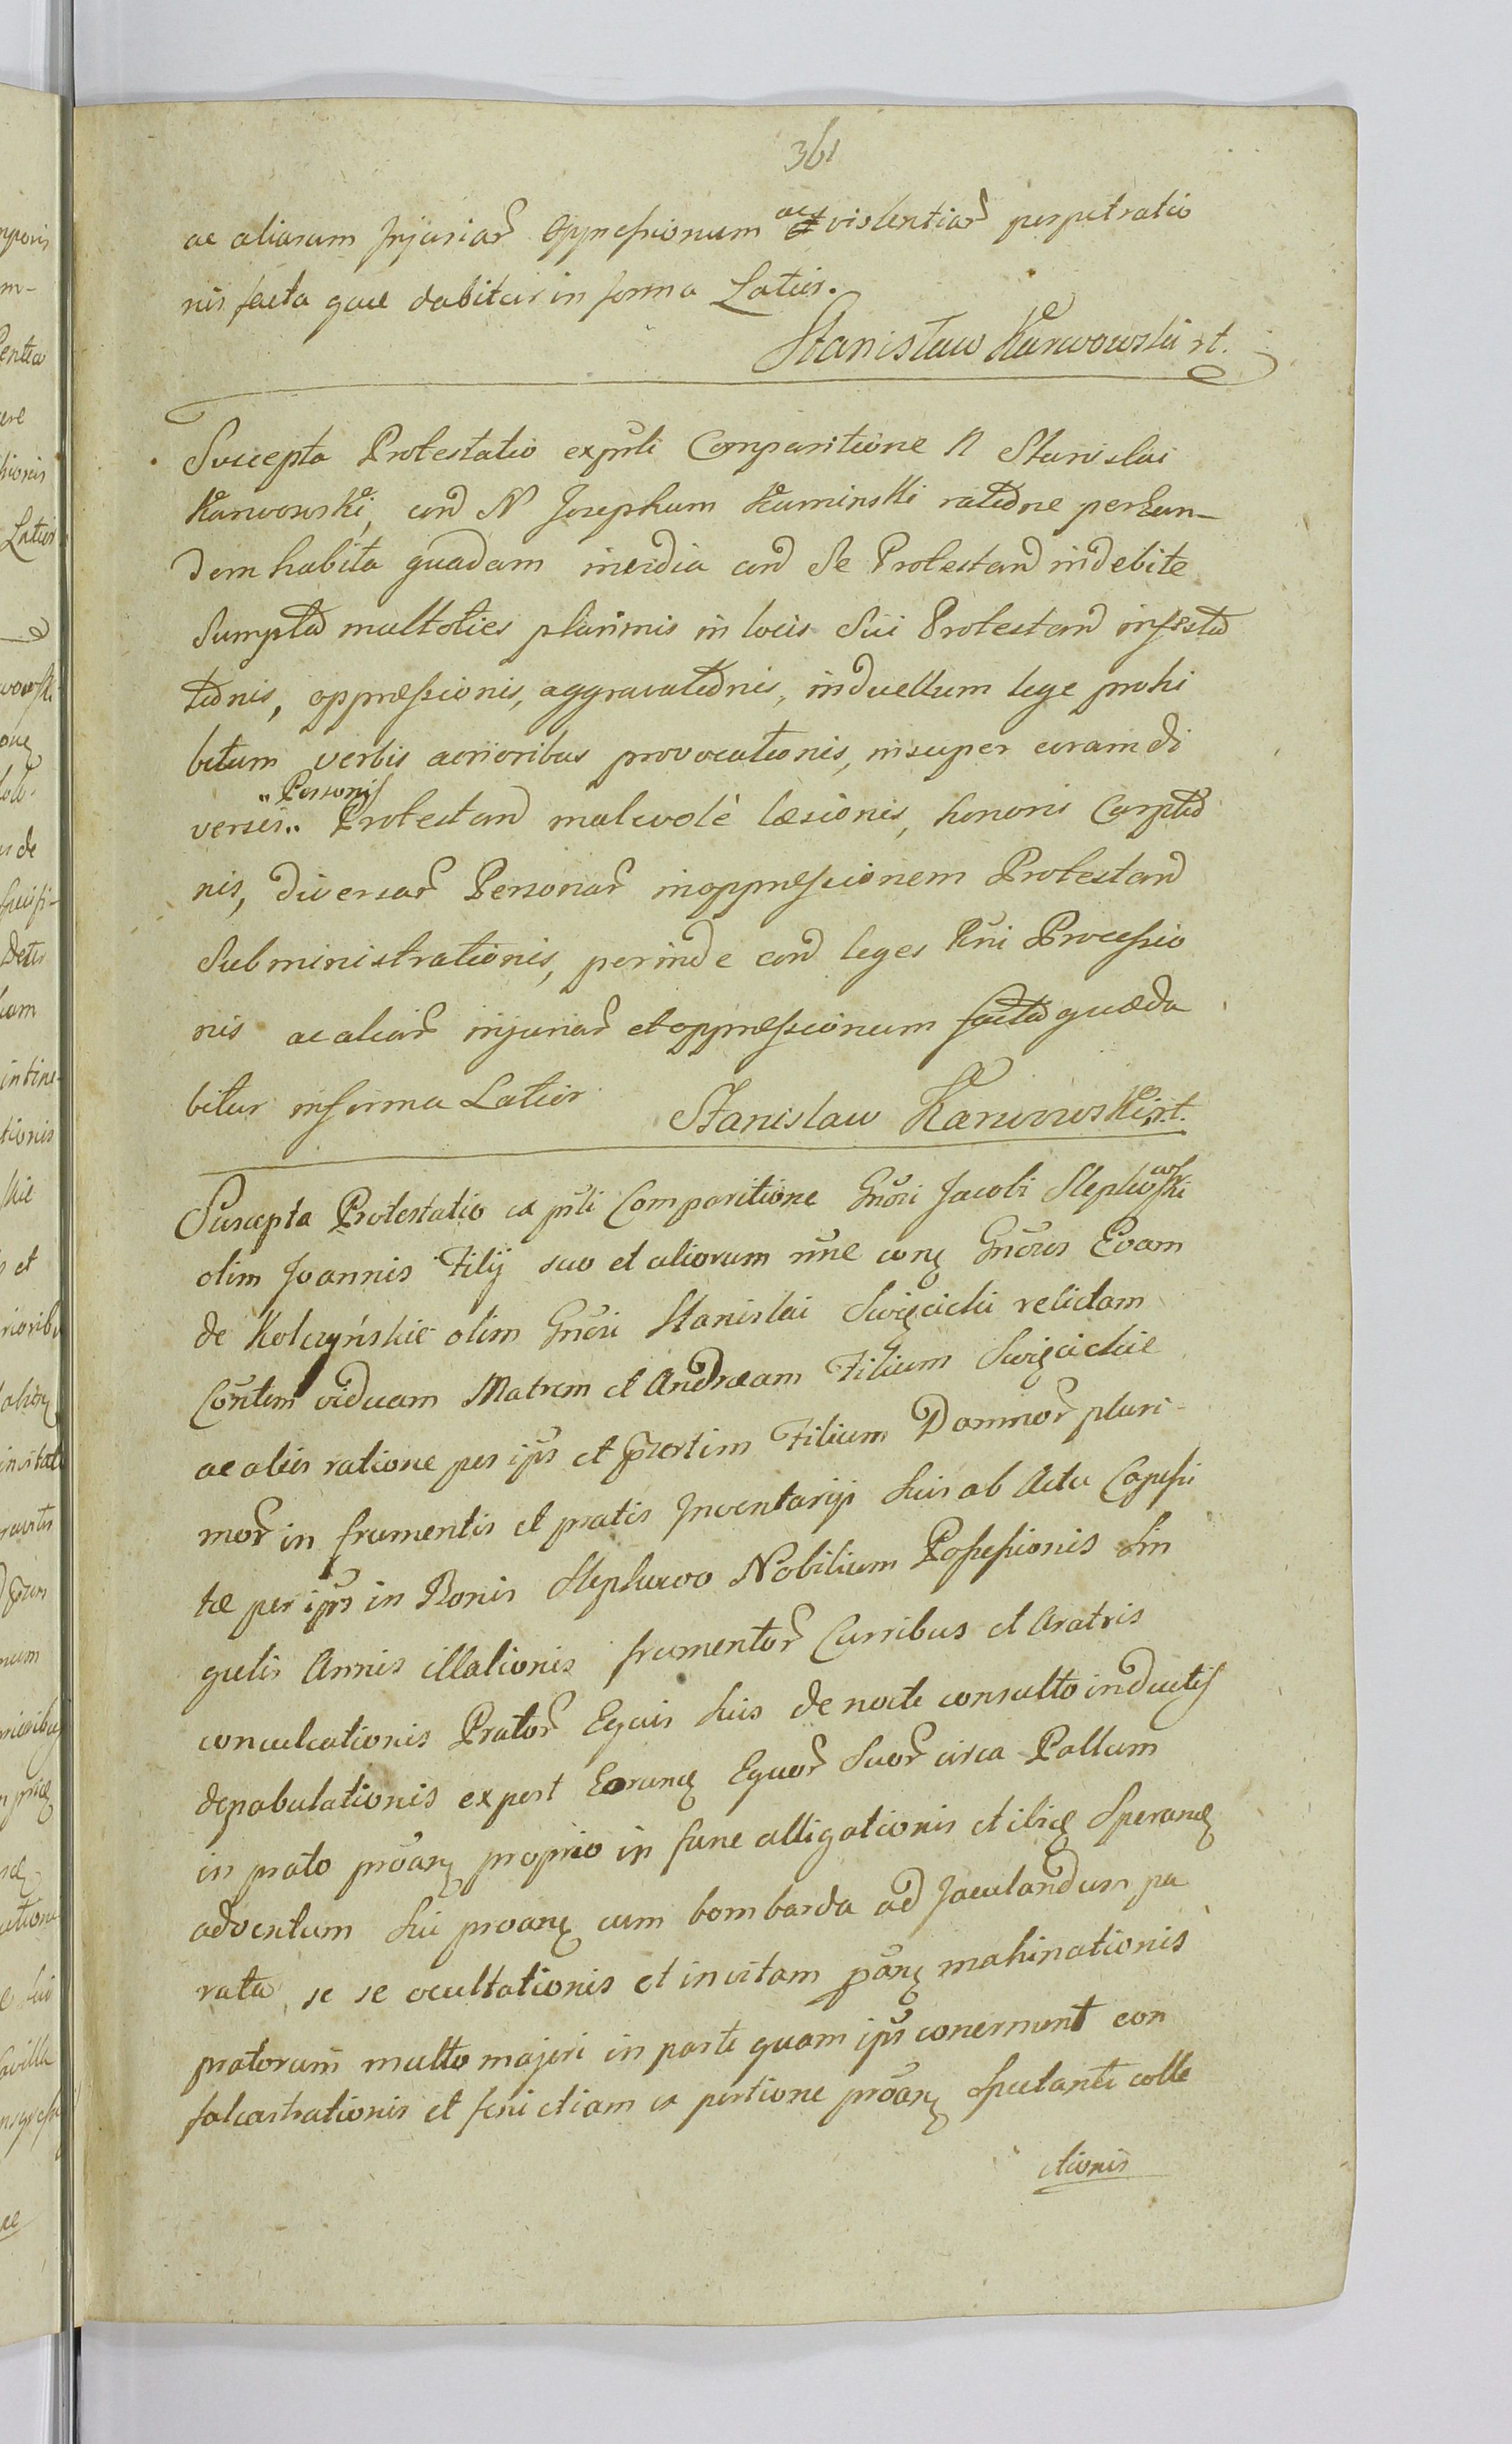 361
ac aliarum Injuriar Oppressionum ac violentiar perpetratio
nis facta quae dabitur in forma Latior.
Stanisław Karwowski rt.
Suscepta Protestatio ex pnti Comparitione N Stanislai
Karwowski, con N Josephum Kaminski ratione per Eun-
dem habita quadam invidia con Se Protestan indebite
Sumpta multoties plurimis in locis Sui Protestan infesta
tionis, oppressionis, aggravationis, in duellum lege prohi
bitum verbis acrioribus provocationis, insuper coram di
versis " Personis " Protestan malevolè læsionis, honoris Carptio
nis, diversar Personar in oppressionem Protestan
Subministrationis, perinde con leges Rni Processio
nis ac aliar injuriar et oppressionum facta quæ da
bitur in forma Latior
Stanislaw Karwowski rt.
Suscepta Protestatio ex pnti Comparitione Gnosi Jacobi Slepkowski
olim Joannis Filij suo et aliorum nne conq Gnosos Evam
de Kolczyńskie olim Gnosi Stanislai Swięcicki relictam
Contem viduam Matrem et Andræam Filium Swięcickie
ac aliis ratione per ips et prsertim Filium Damnor pluri-
mor in frumentis et pratis Inventarijs Suis ab Actu Capessi
tæ per ips in Bonis Slepkowo Nobilium Possessionis Sin
gulis Annis illationis frumentor Curribus et Aratris
conculcationis Prator Equis Suis de nocte consulto inductis
depabulationis ex post Eorunq Equor Suor circa Pallum
in prato proanq proprio in fune alligationis et ibiq Speranq
adventum Sui proanq cum bombarda ad Jaculandum pa
rata, se se ocultationis et in vitam panq mahinationis
pratorum multo majori in parte quam ips concernunt con
falcastrationis et feni etiam ex portione proanq Spectante colle
ctionis